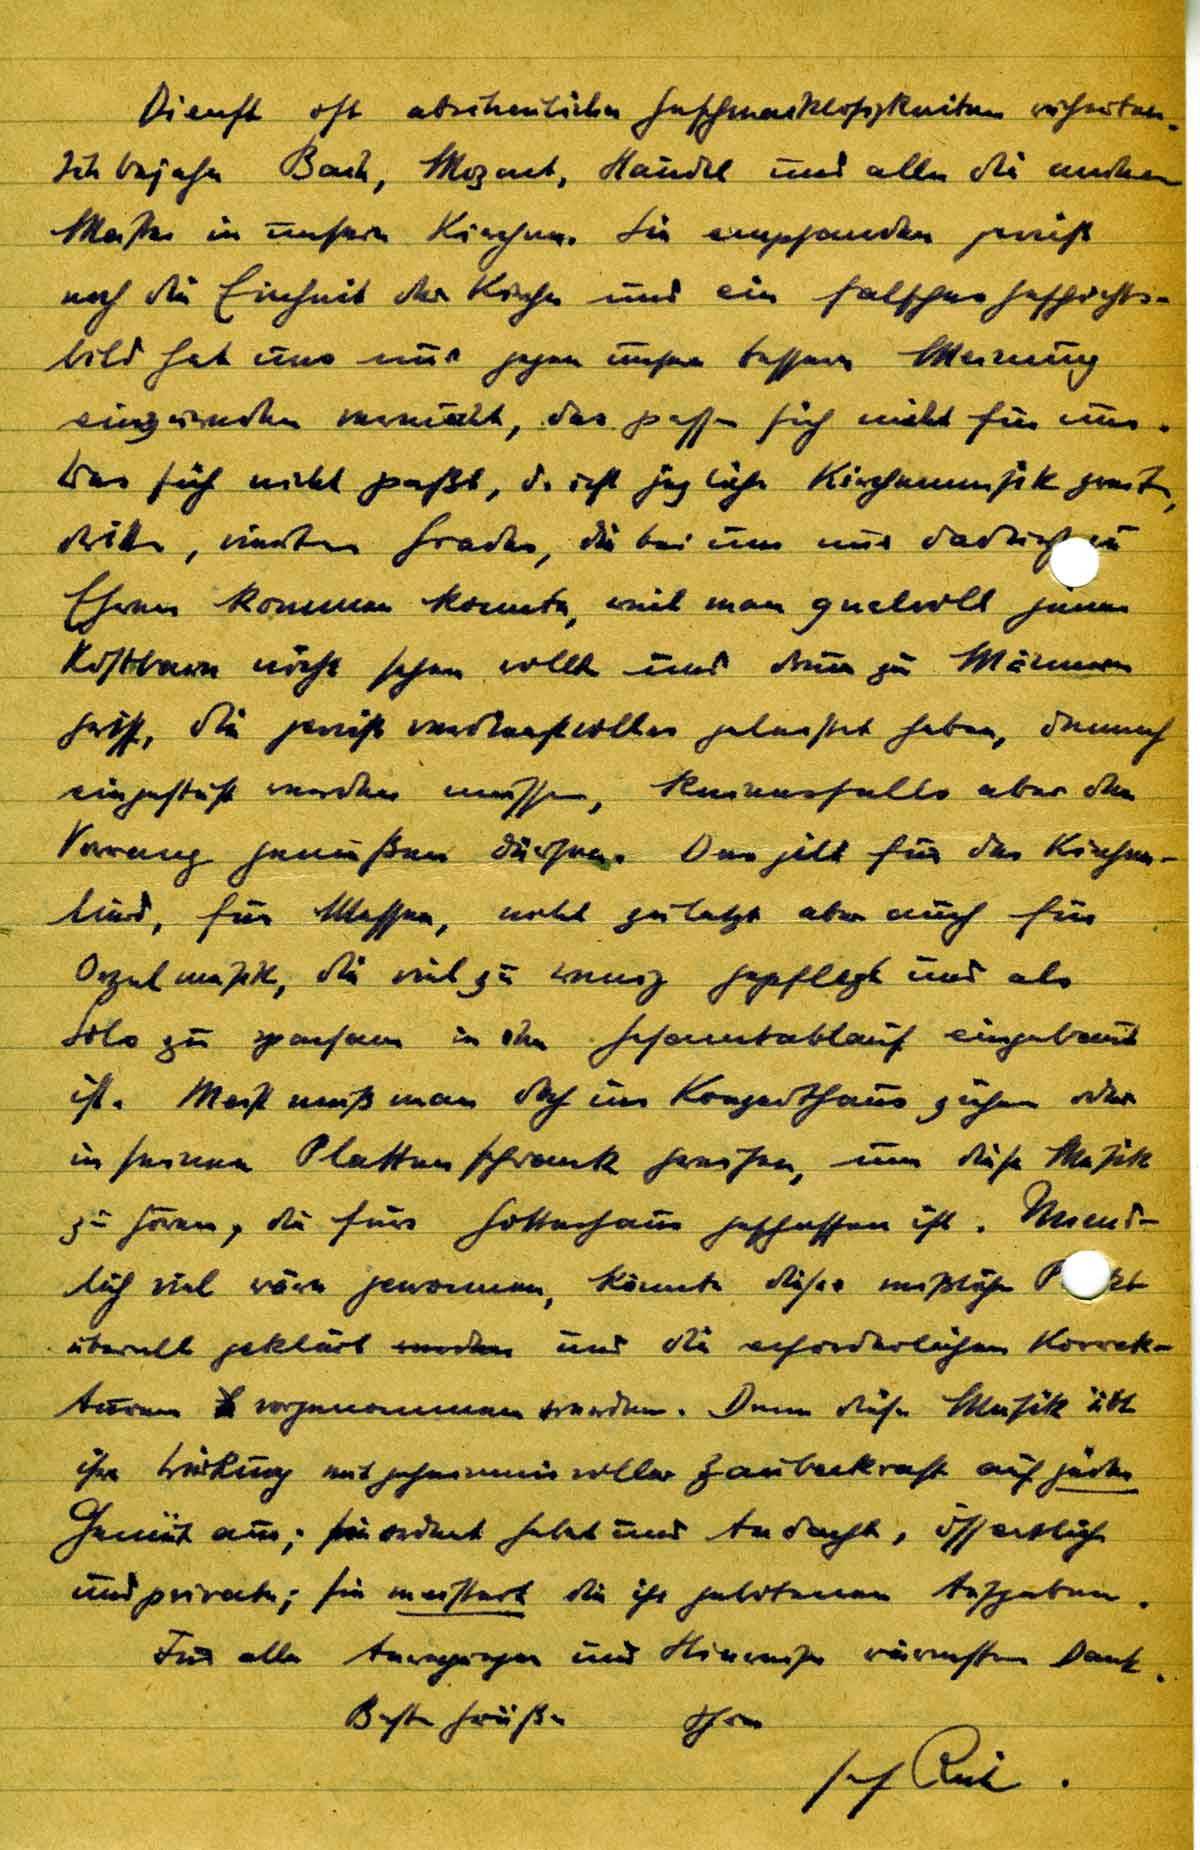 Dienst oft abscheulicher Geschmacklosigkeiten
Ich bejahe Bach, Mozart, Händel und alle die andern
Meister in unsern Kirchen. Sie empfanden gewiß
noch die Einheit der Kirche und ein falsches Geschichts-
bild hat uns nur gegen unsere bessere Meinung
einzureden versucht, das passe sich nicht für uns.
Was sich nicht paßt, d. ist jegliche Kirchenmusik zweiten,
dritten, vierten Grades, die bei uns nur dadurch zu
Ehren kommen konnte, weil man qualvoll jenes
Kostbare nicht sehen wollte und drum zu Männern
griff, die gewiß verdienstvolles geleistet haben, demnach
eingestuft werden müssen, keinesfalls aber den
Vorrang genießen dürfen. Das gilt für das Kirchen-
lied, für Messen, nicht zuletzt aber auch für
Orgelmusik, die viel zu wenig gepflegt und als
Solo zu sparsam in den Gesamtablauf eingebaut
ist. Meist muß man doch ins Konzerthaus gehen oder
in seinen Plattenschrank greifen, um diese Musik
zu hören, die fürs Gotteshaus geschaffen ist. Unend-
lich viel wäre gewonnen, könnte dieser mißliche P kt
überall geklärt werden und die erforderlichen Korrek-
turen vorgenommen werden. Denn diese Musik übt
ihre Wirkung mit geheimnisvoller Zauberkraft auf jedes
Gemüt aus; sie ordnet Gebet und Andacht, öffentliche
und private; sie meistert die ihr gebotenen Aufgaben.
Für alle Anregungen und Hinweise wärmsten Dank.
Beste Grüße Ihr